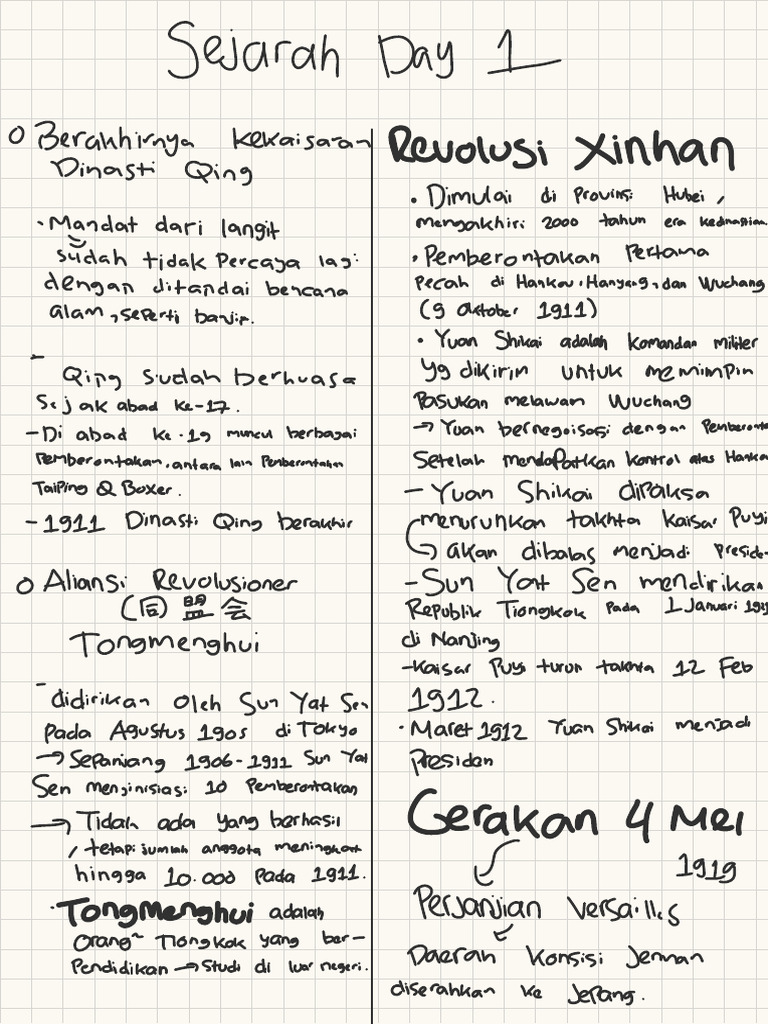 Sejarah Day 1
Berakhirnya kekaisaran
Dinasti Qing
Mandat dari langit
sudah tidak percaya lagi
dengan ditandai bencana
alam, seperti banjir.
Qing sudah berkuasa
Sejak abad ke-17.
- Di abad ke-19 muncul berbagai
Pemberontakan, antara lain Pemberontakan
Taiping & Boxer.
- 1911 Dinasti Qing berakhir
Aliansi Revolusioner
(同盟会
Tongmenghui
- didirikan oleh Sun Yat Sen
pada Agustus 1905 di Tokyo
→ Sepanjang 1906-1911 Sun Yat
Sen menginisiasi 10 Pemberontakan
→ Tidak ada yang berhasil
, tetapi jumlah anggota meningkat
hingga 10.000 pada 1911.
· Tongmenghui adalah
orang~ Tiongkok yang ber-
Pendidikan → Studi di luar negeri.
Revolusi Xinhan
• Dimulai di Provinsi Hubei,
mengakhiri 2000 tahun era kedinastian.
• Pemberontakan Pertama
Pecah di Hankou, Hanyang, dan Wuchang
(9 Oktober 1911)
• Yuan Shikai adalah komandan militer
yg dikirim untuk memimpin
Pasukan melawan Wuchang
→ Yuan bernegoisasi dengan Pemberonta
Setelah mendapatkan kontrol atas Hankou
- Yuan Shikai dipaksa
menurunkan takhta kaisar Puyi
→ akan dibalas menjadi preside
- Sun Yat Sen mendirikan
Republik Tiongkok pada 1 Januari 191
di Nanjing
- Kaisar Puyi turun takhta 12 Feb
1912.
· Maret 1912 Yuan Shikai menjadi
Presiden
Gerakan 4 Mei
1919
Perjanjian Versailles
Daerah Konsisi Jerman
diserahkan ke Jepang.